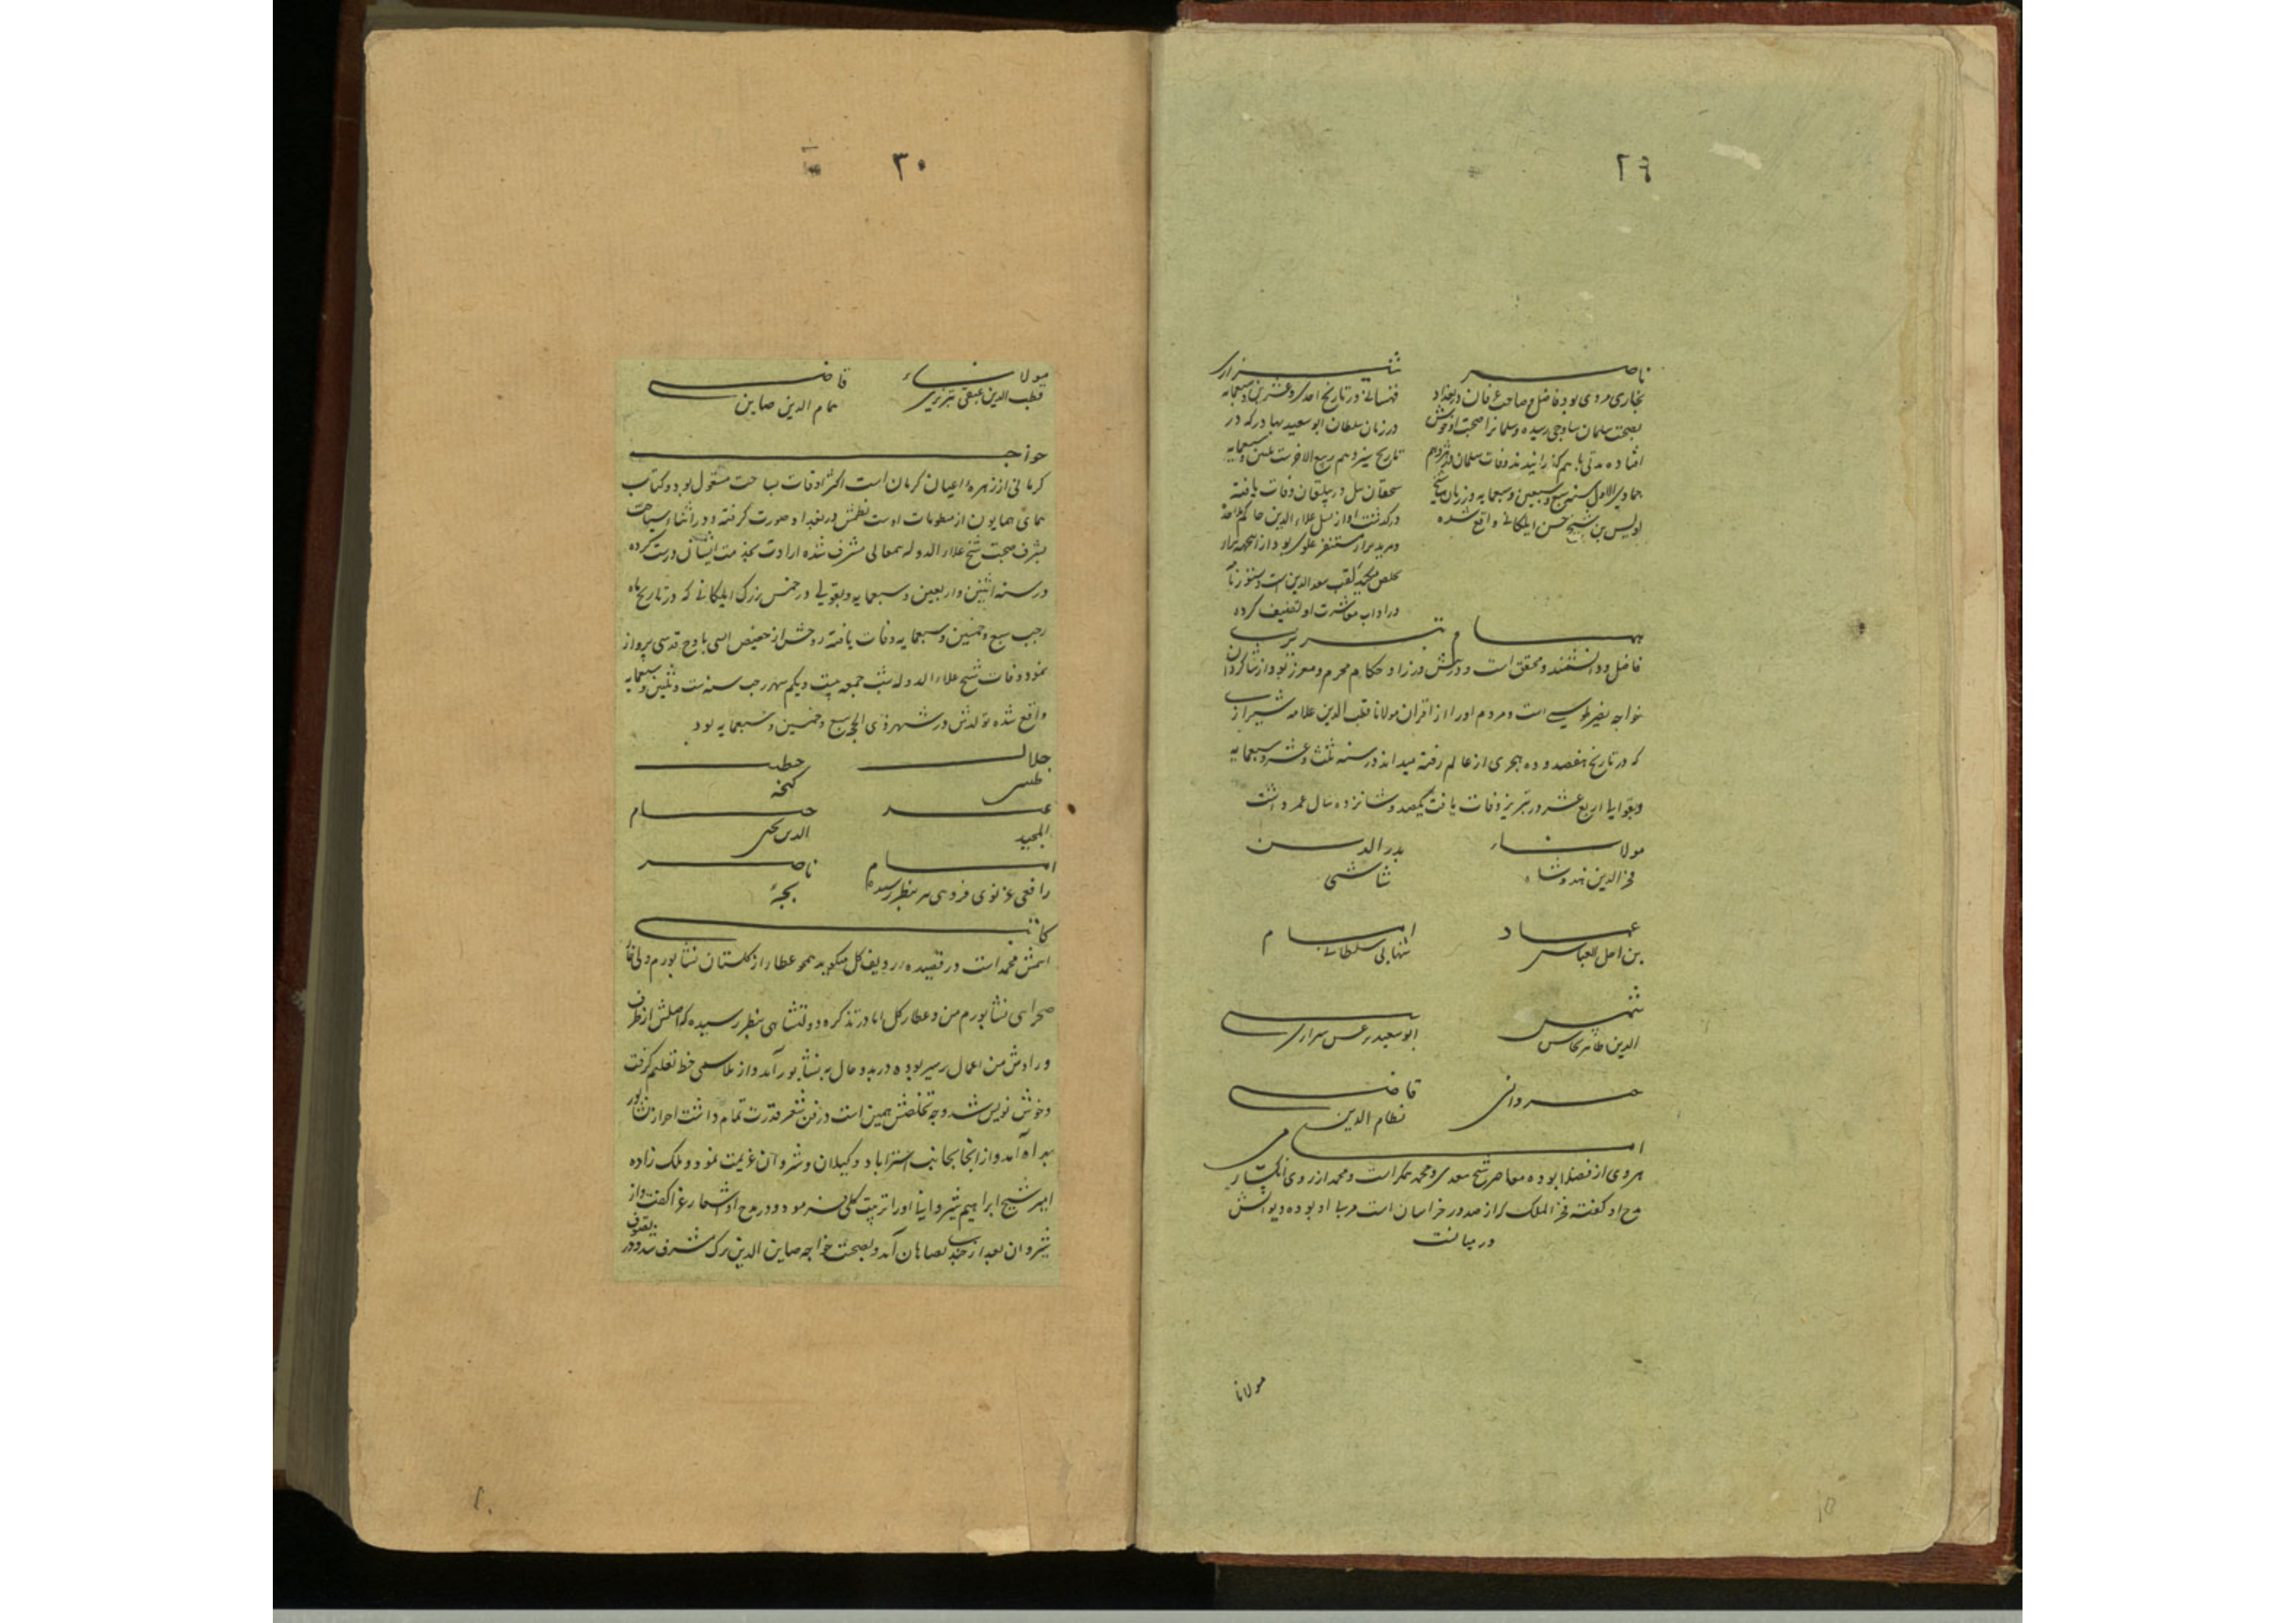 ٢٩
ناصر
بخاری مردی بود فاضل و صاحب عرفان در بغداد
بصحبت سلمان ساوجی رسیده و سلمانرا صحبت او خوش
افتاده مدتی با هم گذرانیدند وفات سلمان در
جمادی الاول سنه سبع و سبعین و سبعمایه در زمان شیخ
اویس بن شیخ حسن ایلکانی واقع شده
شیرازی
در تاریخ احدی و عشر
در زمان سلطان ابو سعید بهادر که در
تاریخ سیزدهم ربیع الاخر ست و
وفات یافته
درگذشت او از نسل علاء الدین
لقب سعد الدین است
در اداب معاشرت او تصنیف کرده
همام تبریزی
فاضل و دانشمند و محقق است و درش در نزد حکام محرم و معزز بود از شاگردان
خواجه نصیر طوسی است و مردم او را از اقران مولانا قطب الدین علامه شیرازی
که در تاریخ هفصد و ده هجری از عالم رفته میدانند در سنه ثلث و عشر و سبعمایه
و بقولی اربع عشر در تبریز وفات یافت یکصد و شانزده سال عمر داشت
مولانا
فخر الدین هندوشاه
بدر الدین
شاشی
عماد
امام
شمس
الدین طاهر
ابو سعید
قاضی
نظام الدین
امامی
هروی از فضلا بوده معاصر شیخ سعدی و محمد همگر است و محمد از روی انکسار
مدح او گفته فخر الملک که از صدور خراسان است مربی او بوده دیوانش
در میانست
مولانا
٣٠
مولانا
قطب الدین عتیقی تبریزی
قاضی
امام الدین صاین
خواجو
کرمانی از زمره اعیان کرمان است اکثر اوقات بسیاحت مشغول بود و کتاب
همای همایون از منظومات اوست نظمش در بغداد صورت گرفته و در اثناء سیاحت
بشرف صحبت شیخ علاء الدوله سمنانی مشرف شده ارادت بخدمت ایشان درست کرده
در سنه اثنین و اربعین و سبعمایه و بقولی در حسن بزرگ ایلکانی که در تاریخ ماه
رجب سبع و خمسین و سبعمایه وفات یافته روحش از حضیض انسی باوج قدسی پرواز
نمود و وفات شیخ علاء الدوله شب جمعه بیست و یکم شهر رجب سنه ست و ثلثین و سبعمایه
واقع شده تولدش در شهر ذی الحجه سبع و خمسین و سبعمایه بود
جلال
خطیب
گنجه
عبد
المجید
حسام
الدین
امام
رافعی غزنوی فردوسی بنظر رسیده
ناصر
بجه
کاتبی
اسمش محمد است در قصیده ردیف گل میگوید همچو عطار از گلستان نشابورم ولی خار
صحرای نشابورم من و عطار گل اما در تذکره دولتشاهی بنظر رسیده که اصلش از طرق
و راوش من اعمال ترشیز بوده در بدو حال به نشابور آمد و از سیمی خط تعلیم گرفت
و خوش نویس شد وجه تخلصش همین است در فن شعر قدرت تمام داشت اخر از نشابور
بهراه آمد و از آنجا بجانب استراباد و گیلان و شروان عزیمت نمود و ملک زاده
امیر شیخ ابراهیم شیروانیا او را تربیت کلی فرمود و در مدح او اشعار غرا گفت و از
شروان بعد از چند بصفاهان آمد و بصحبت خواجه صاین الدین ترک مشرف شد و در تصوف